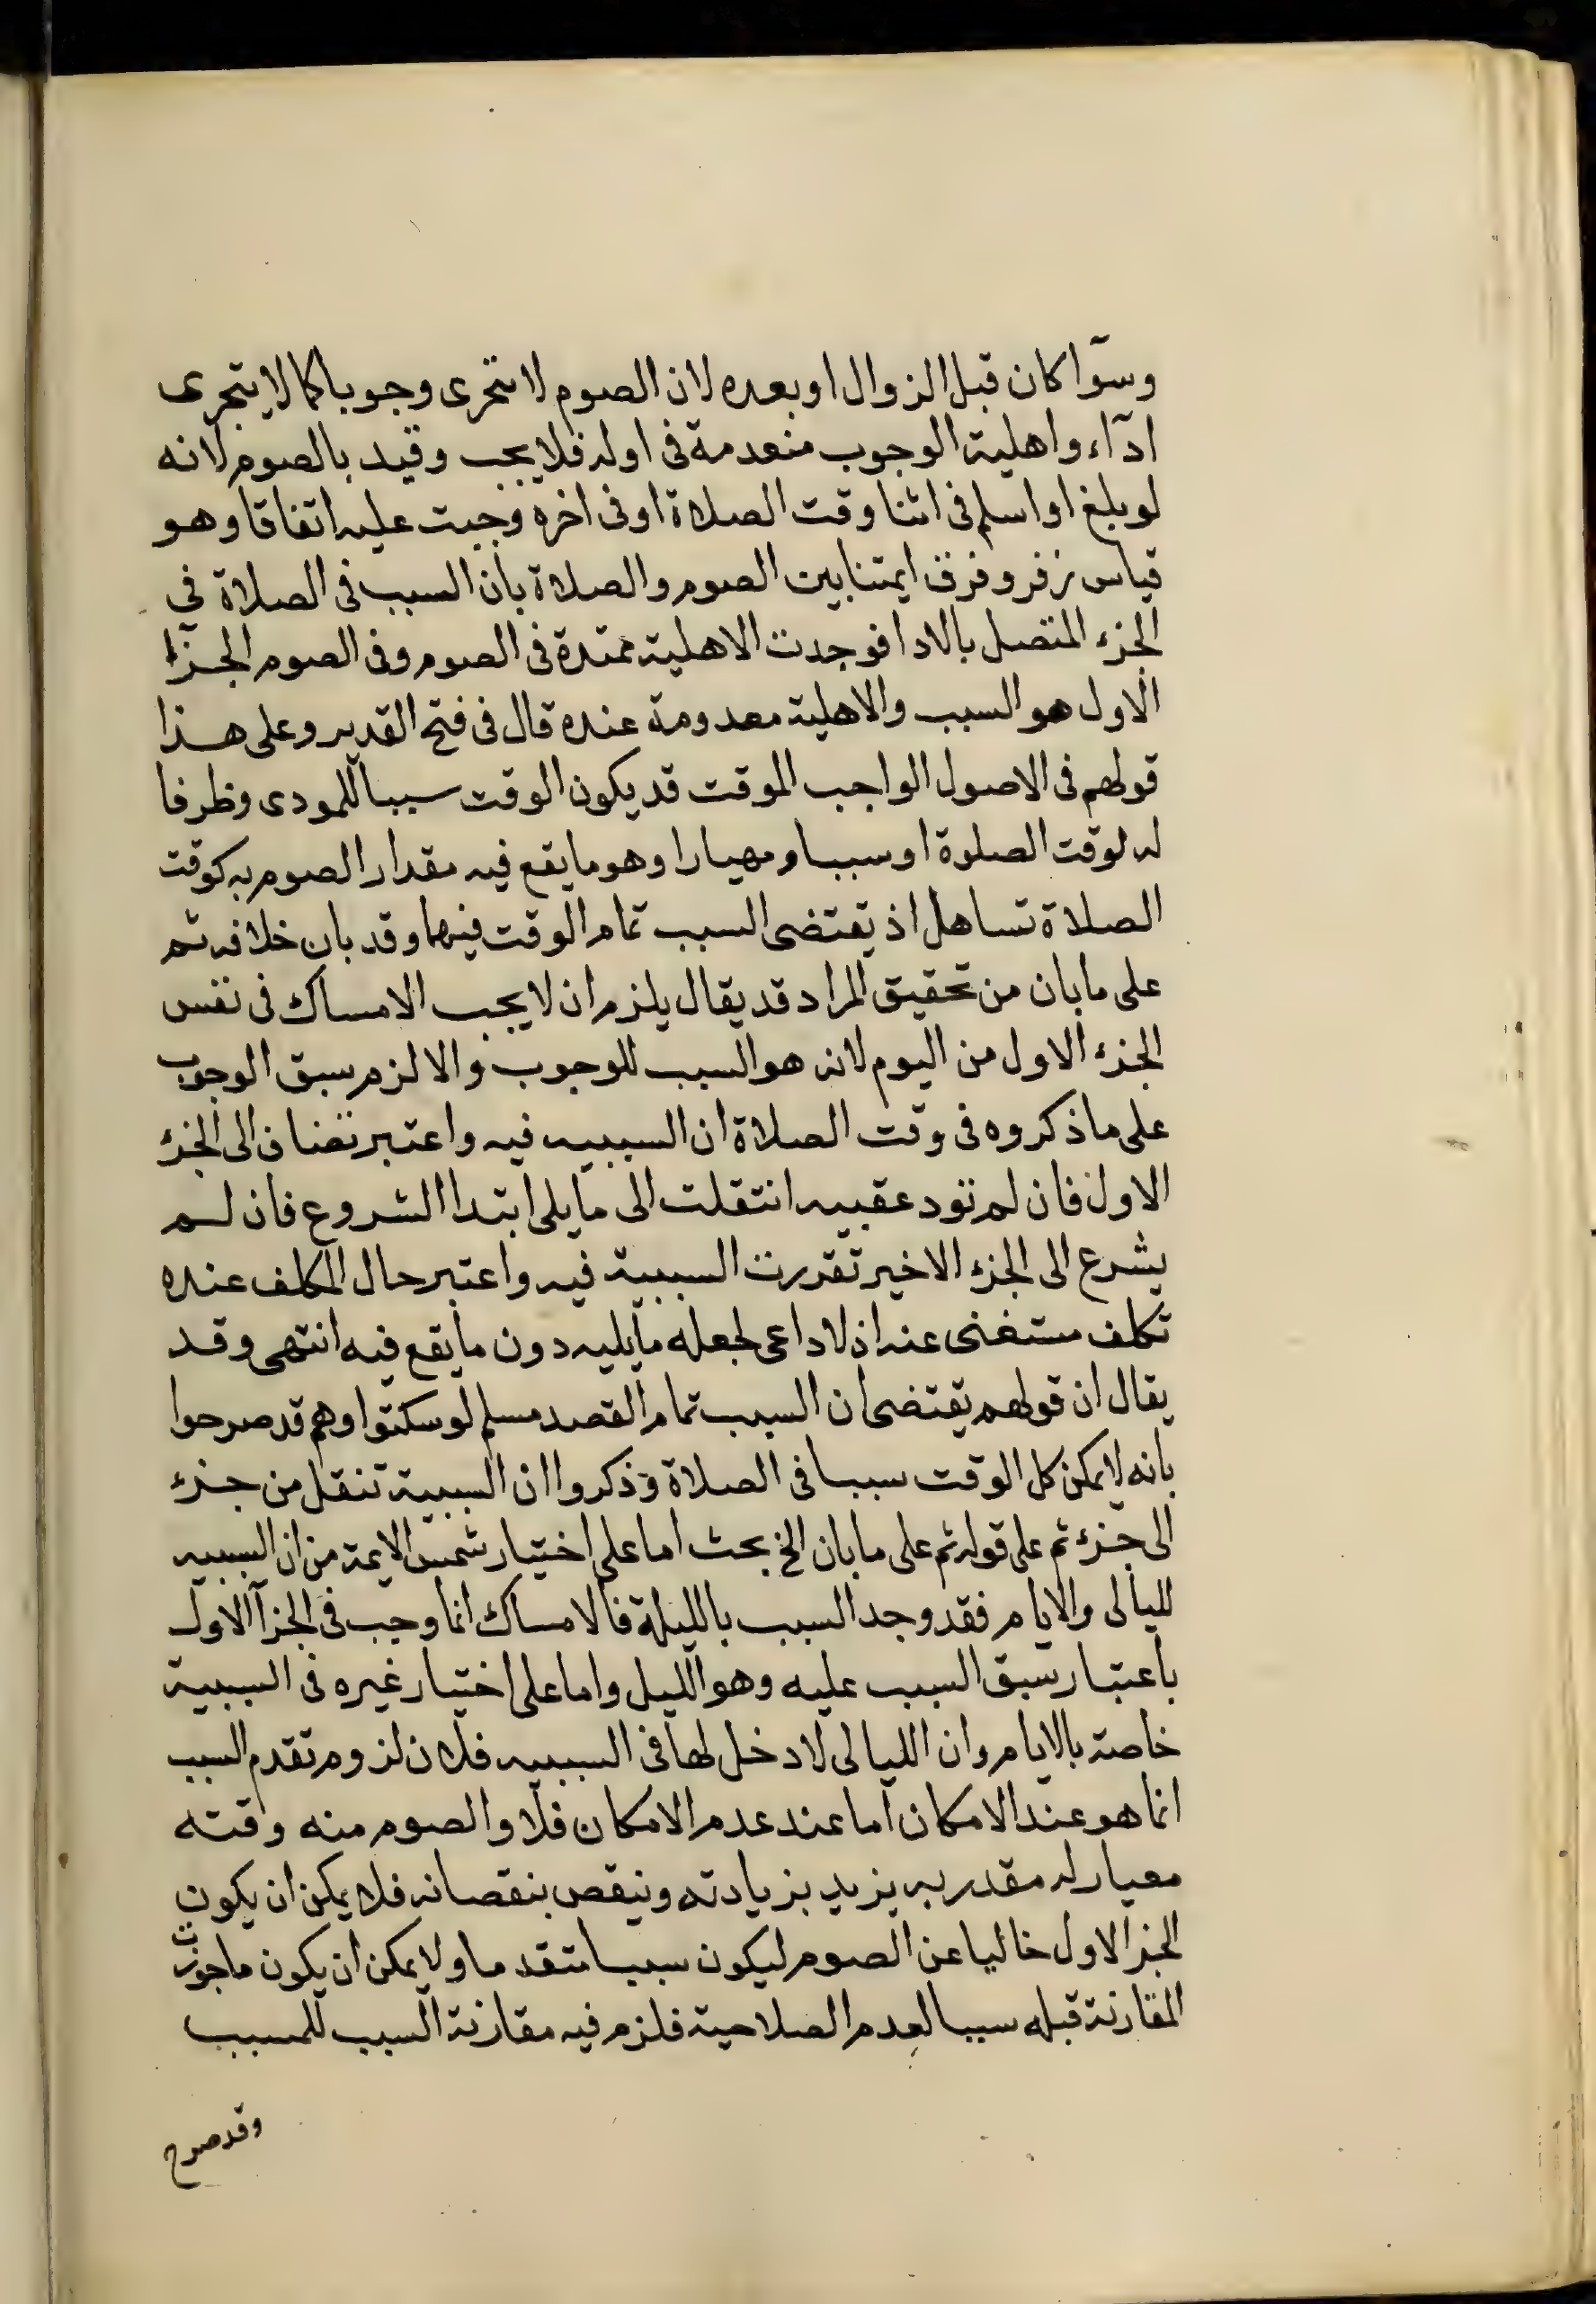 وسوآ كان قبل الزوال او بعده لان الصوم لا يتجزى وجوبا كما لا يتجزى
ادآء واهلية الوجوب منعدمة فى اوله فلا يجب وقيد بالصوم لانه
لو بلغ او اسلم فى اثنا وقت الصلاة او فى اخره وجبت عليه اتفاقا وهو
قياس زفر وفرق ايمتنا بين الصوم والصلاة بان السبب فى الصلاة في
الجزء المتصل بالادا فوجدت الاهلية ممتدة فى الصوم وفى الصوم الجزء
الاول هو السبب والاهلية معدومة عنده قال فى فتح القدير وعلى هذا
قولهم فى الاصول الواجب الموقت قد يكون الوقت سببا للمودى وظرفا
له لوقت الصلوة او سببا ومهيارا وهو ما يقع فيه مقدار الصوم به كوقت
الصلاة تساهل اذ يقتضى السبب تمام الوقت فيهما وقد بان خلافه ثم
على ما بان من تحقيق المراد قد يقال يلزم ان لا يجب الامساك فى نفس
الجزء الاول من اليوم لانه هو السبب للوجوب والا لزم سبق الوجوب
على ما ذكروه فى وقت الصلاة ان السببيه فيه واعتبر تضاف الى الجزء
الاول فان لم تود عقبيه انتقلت الى ما يلى ابتدا الشروع فان لم
يشرع الى الجزء الاخير تقررت السببية فيه واعتبر حال المكلف عنده
تكلف مستغنى عنه اذ لا داعى لجعله ما يليه دون ما يقع فيه انتهى وقد
يقال ان قولهم يقتضى ان السبب تمام القصد مسلم لو سكتوا وهم قد صرحوا
بانه لا يمكن كل الوقت سببا فى الصلاة وذكروا ان السببية تنقل من جزء
الى جزء ثم على قوله ثم على ما بان الخ بحث اما على اختيار شمس الايمة من ان السببيه
لليالى والايام فقد وجد السبب بالليلة فالامساك انما وجب فى الجزآ الاول
باعتبار سبق السبب عليه وهو الليل واما على اختيار غيره فى السببية
خاصة بالايام وان الليالى لا دخل لها فى السببيه فلان لزوم تقدم السبب
انما هو عند الامكان اما عند عدم الامكان فلا والصوم منه وقته
معيار له مقدر به يزيد بزيادته وينقص بنقصانه فلا يمكن ان يكون
الجز الاول خاليا عن الصوم ليكون سببا متقدما ولا يمكن ان يكون ماجوزت
المقارنة قبله سببا لعدم الصلاحية فلزم فيه مقارنة السبب للمسبب
وقد صرح